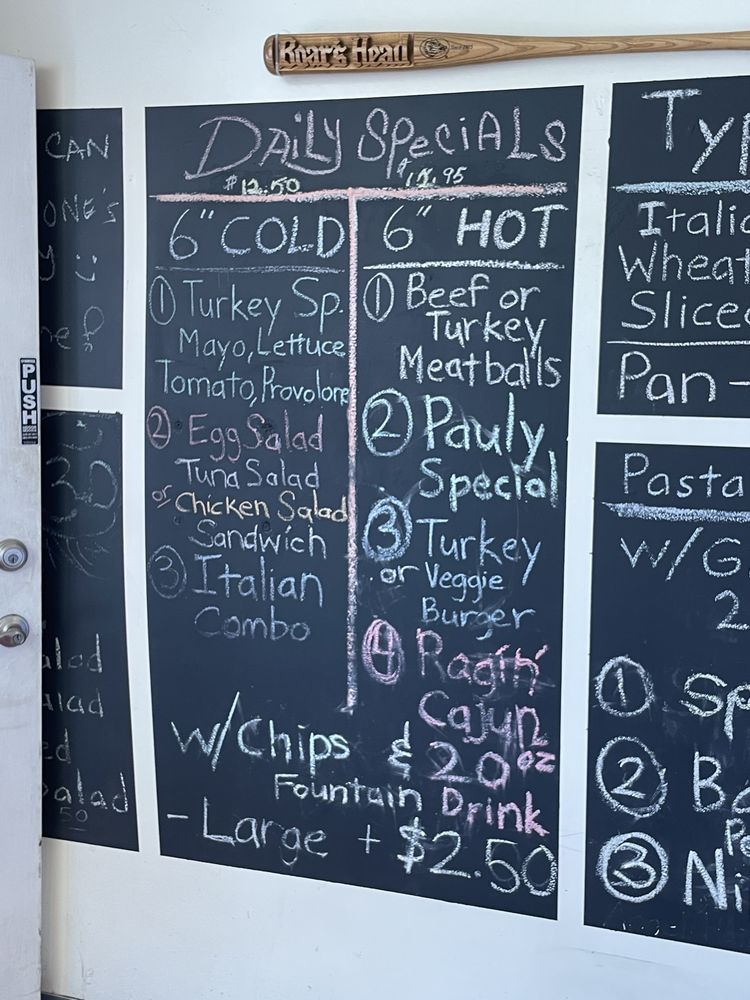 Boar's Head
CAN
ONE'S
DAiLy SPeciALS
$12.50
6" COLD
① Turkey Sp.
Mayo, Lettuce
Tomato, Provolone
② Egg Salad
Tuna Salad
or Chicken Salad
Sandwich
③ Italian
Combo
6" HOT
① Beef or
Turkey
Meatballs
② Pauly
Special
③ Turkey
or Veggie
Burger
④ Ragin'
Cajun
w/Chips & 20oz
Fountain Drink
- Large + $2.50
PUSH
alad
alad
ed
alad
50
Typ
Italic
Wheat
Sliced
Pan -
Pasta
w/G
2
① Sp
② Ba
③ Ni